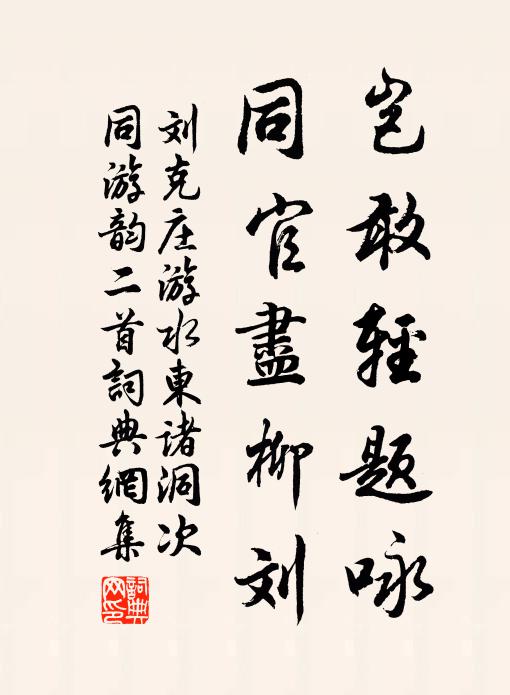 岂敢輕题咏
同官盡柳刘
刘克庄游水東诸洞次
同游韵二首詞典網集
詞典網印